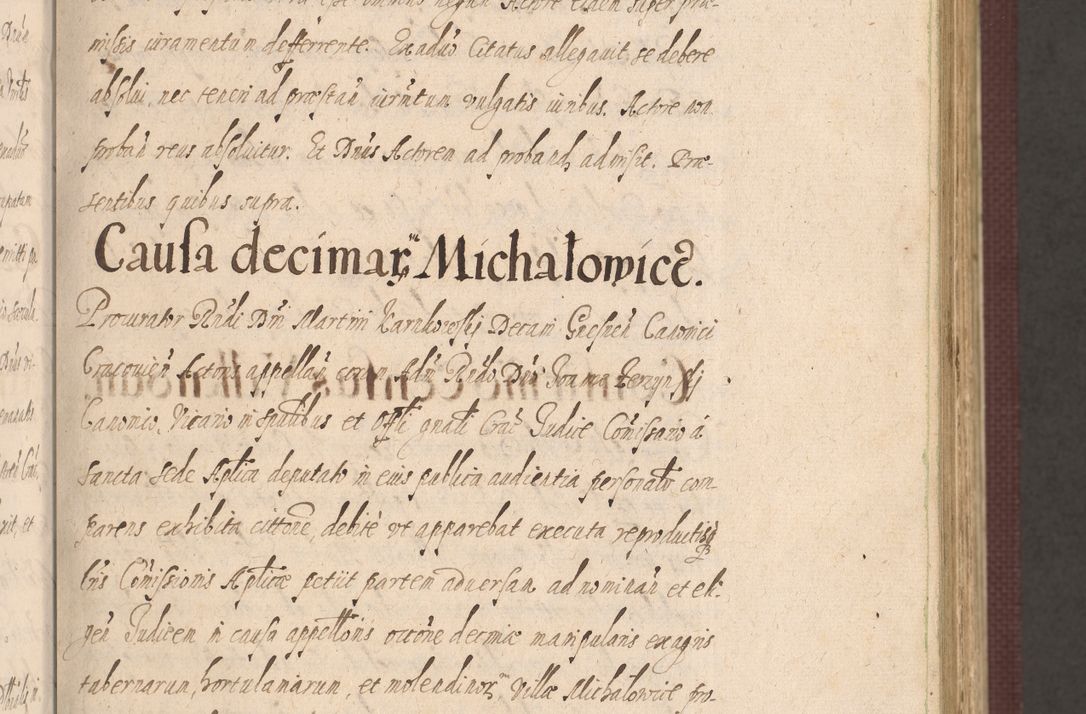 missis iuramentum defferrente. Ex aduo Citatus allegauit se debere
absolui, nec teneri ad præstan iurntum vulgatis iuribus. Actore non
proban reus absoluitur. Et Dnus Actorem ad proband admisit. Præ-
sentibus quibus supra.
Causa decimarum Michałowice.
Procurator Rndi Dni Martini Decani Gnesnen Canonici
Cracouien Actoris appellan coram Adm Rndo Dno Joanne
Canonico, Vicario in spualibus et Offli gnali Crac Judice Comissario á
Sancta Sede Aplica deputato in eius publica audientia personalr com-
parens exhibita cittone, debite vt apparebat executa reproductisq
lris Comissionis Aplicæ petiit partem aduersam ad nominan et eli-
gen Judicem in causa appellonis occone decimæ manipularis ex agris
tabernarum, hortulaniarum, et molendinorum Villæ Michalowice pro-